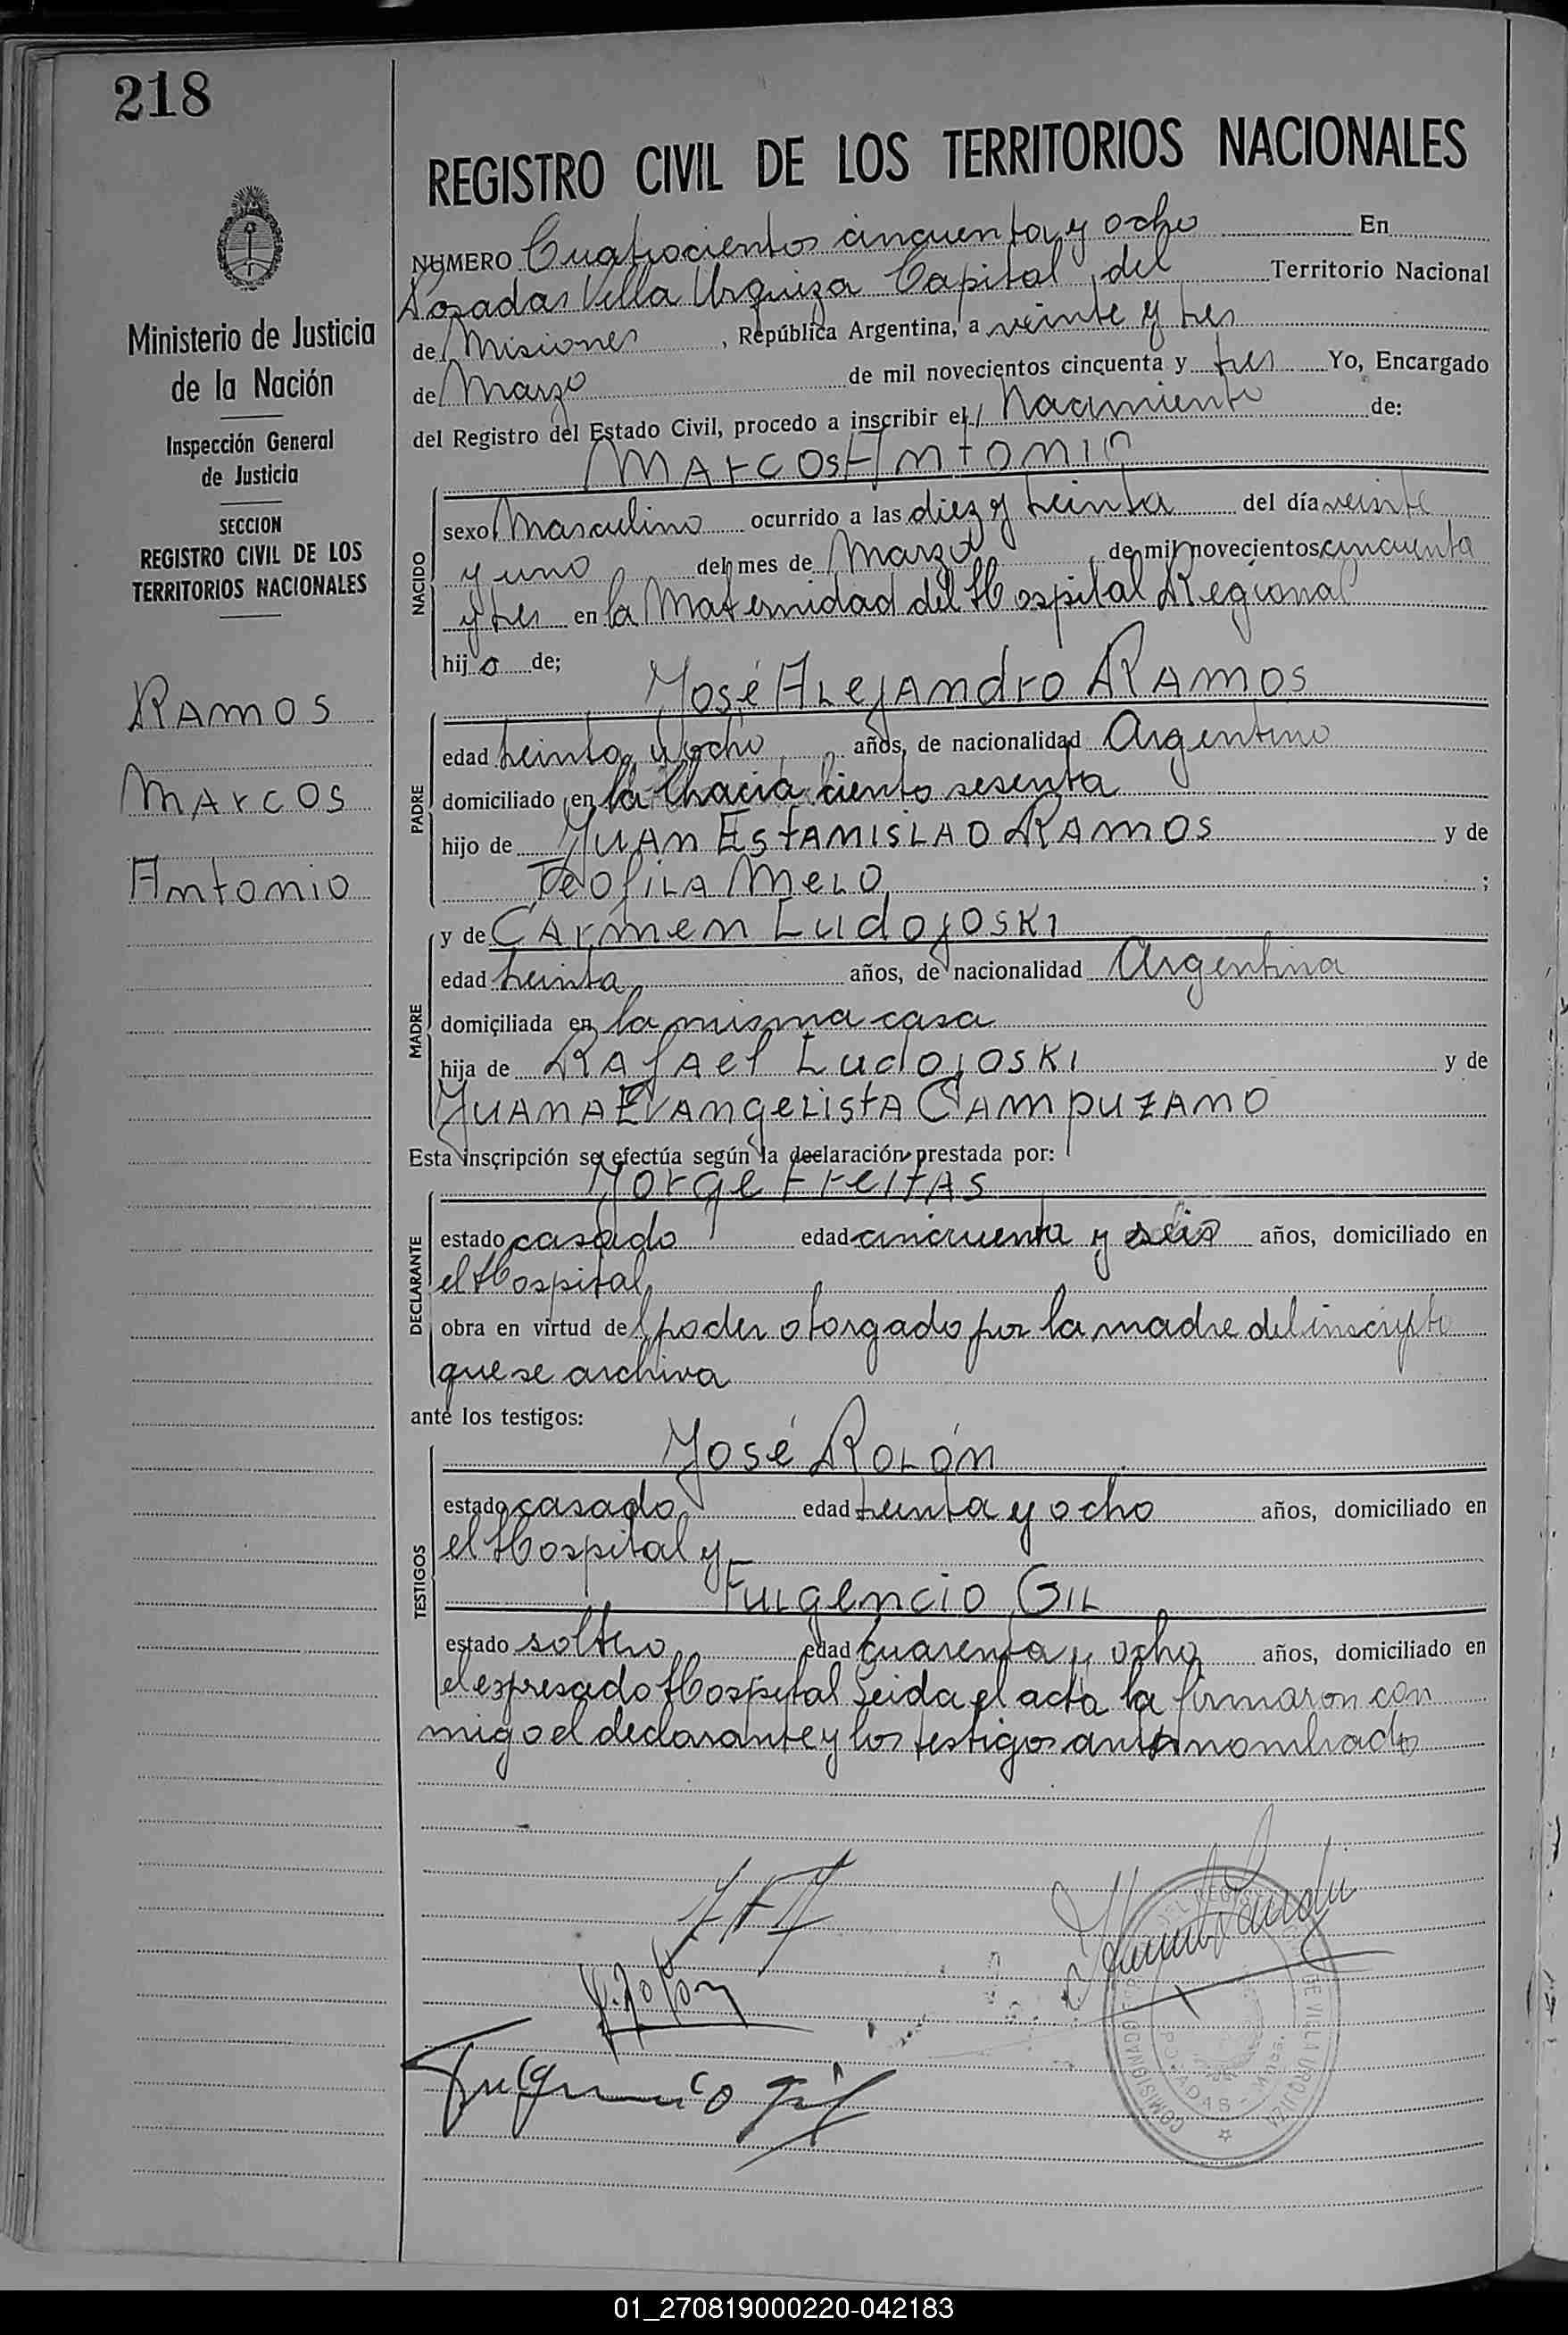 218
REGISTRO CIVIL DE LOS TERRITORIOS NACIONALES
NUMERO Cuatrocientos cincuenta y ocho En
Posadas Villa Urquiza Capital del Territorio Nacional
de Misiones, República Argentina, a veinte y tres
de Marzo de mil novecientos cincuenta y tres Yo, Encargado
del Registro del Estado Civil, procedo a inscribir el Nacimiento de:
Marcos Antonio
NACIDO
sexo Masculino ocurrido a las diez y treinta del día veinte
y uno del mes de Marzo de mil novecientos cincuenta
y tres en la Maternidad del Hospital Regional
hijo de;
José Alejandro Ramos
PADRE
edad treinta y ocho años, de nacionalidad Argentino
domiciliado en la Chacra ciento sesenta
hijo de Juan Estanislao Ramos y de
Teofila Melo ;
MADRE
y de Carmen Ludojoski
edad treinta años, de nacionalidad Argentina
domiciliada en la misma casa
hija de Rafael Ludojoski y de
Juana Evangelista Campuzano
Esta inscripción se efectúa según la declaración prestada por:
Jorge Freitas
DECLARANTE
estado casado edad cincuenta y seis años, domiciliado en
el Hospital
obra en virtud del poder otorgado por la madre del inscripto
que se archiva
ante los testigos:
José Rolón
TESTIGOS
estado casado edad treinta y ocho años, domiciliado en
el Hospital y
Fulgencio Gil
estado soltero edad cuarenta y ocho años, domiciliado en
el expresado Hospital Leida el acta la firmaron con
migo el declarante y los testigos antes nombrados
J. Rolon
Fulgencio Gil
VILLA URQUIZA
POSADAS
Ministerio de Justicia
de la Nación
Inspección General
de Justicia
SECCION
REGISTRO CIVIL DE LOS
TERRITORIOS NACIONALES
Ramos
Marcos
Antonio
01_270819000220-042183